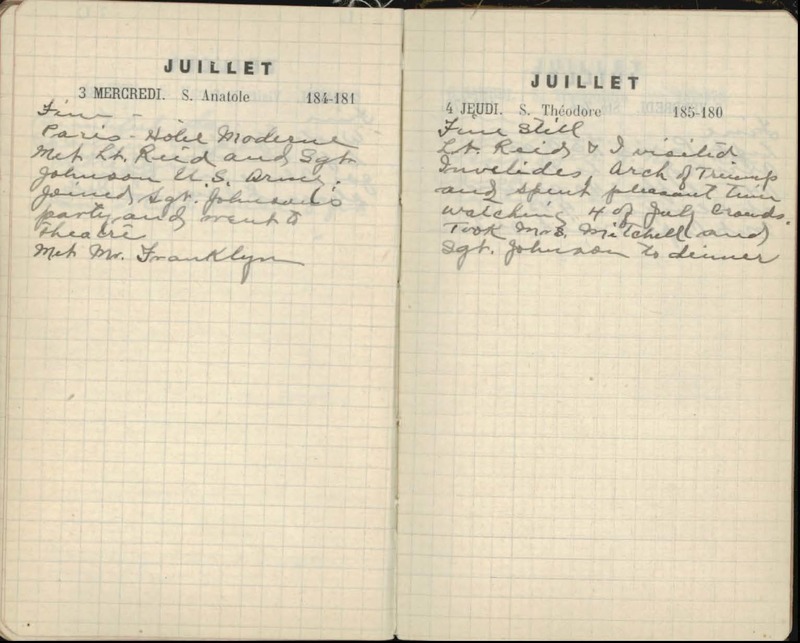 JUILLET
3 MERCREDI. S. Anatole 184-181
Fine -
Paris - Hotel Moderne
Met Lt. Reid and Sgt.
Johnson U.S. Army.
Joined Sgt. Johnson's
party and went to
theatre
Met Mr. Franklyn
JUILLET
4 JEUDI. S. Théodore 185-180
Fine Still
Lt. Reid & I visited
Invelides, Arch of Triump
and spent pleasant time
watching 4 of July crowds.
Took Mrs. Mitchell and
Sgt. Johnson to dinner